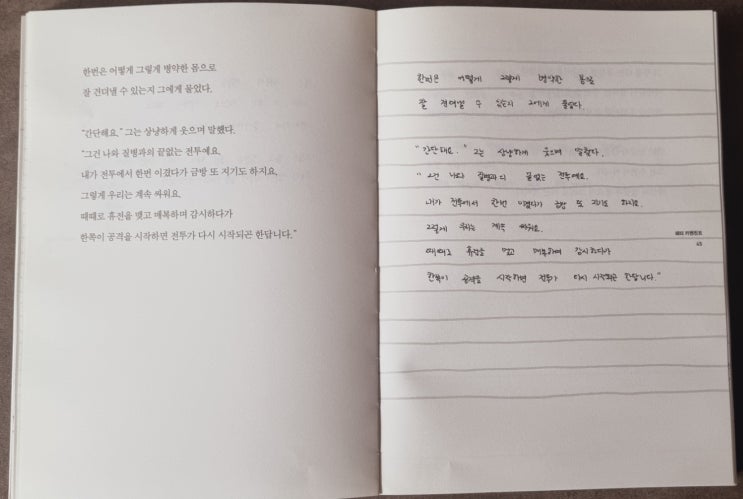 한번은 어떻게 그렇게 병약한 몸으로
잘 견뎌낼 수 있는지 그에게 물었다.
"간단해요." 그는 상냥하게 웃으며 말했다.
"그건 나와 질병과의 끝없는 전투예요.
내가 전투에서 한번 이겼다가 금방 또 지기도 하지요.
그렇게 우리는 계속 싸워요.
때때로 휴전을 맺고 매복하며 감시하다가
한쪽이 공격을 시작하면 전투가 다시 시작되곤 한답니다."
한번은 어떻게 그렇게 병약한 몸으로
잘 견뎌낼 수 있는지 그에게 물었다.
"간단해요." 그는 상냥하게 웃으며 말했다.
"그건 나와 질병과의 끝없는 전투예요.
내가 전투에서 한번 이겼다가 금방 또 지기도 하지요.
그렇게 우리는 계속 싸워요.
때때로 휴전을 맺고 매복하며 감시하다가
한쪽이 공격을 시작하면 전투가 다시 시작되곤 한답니다."
45